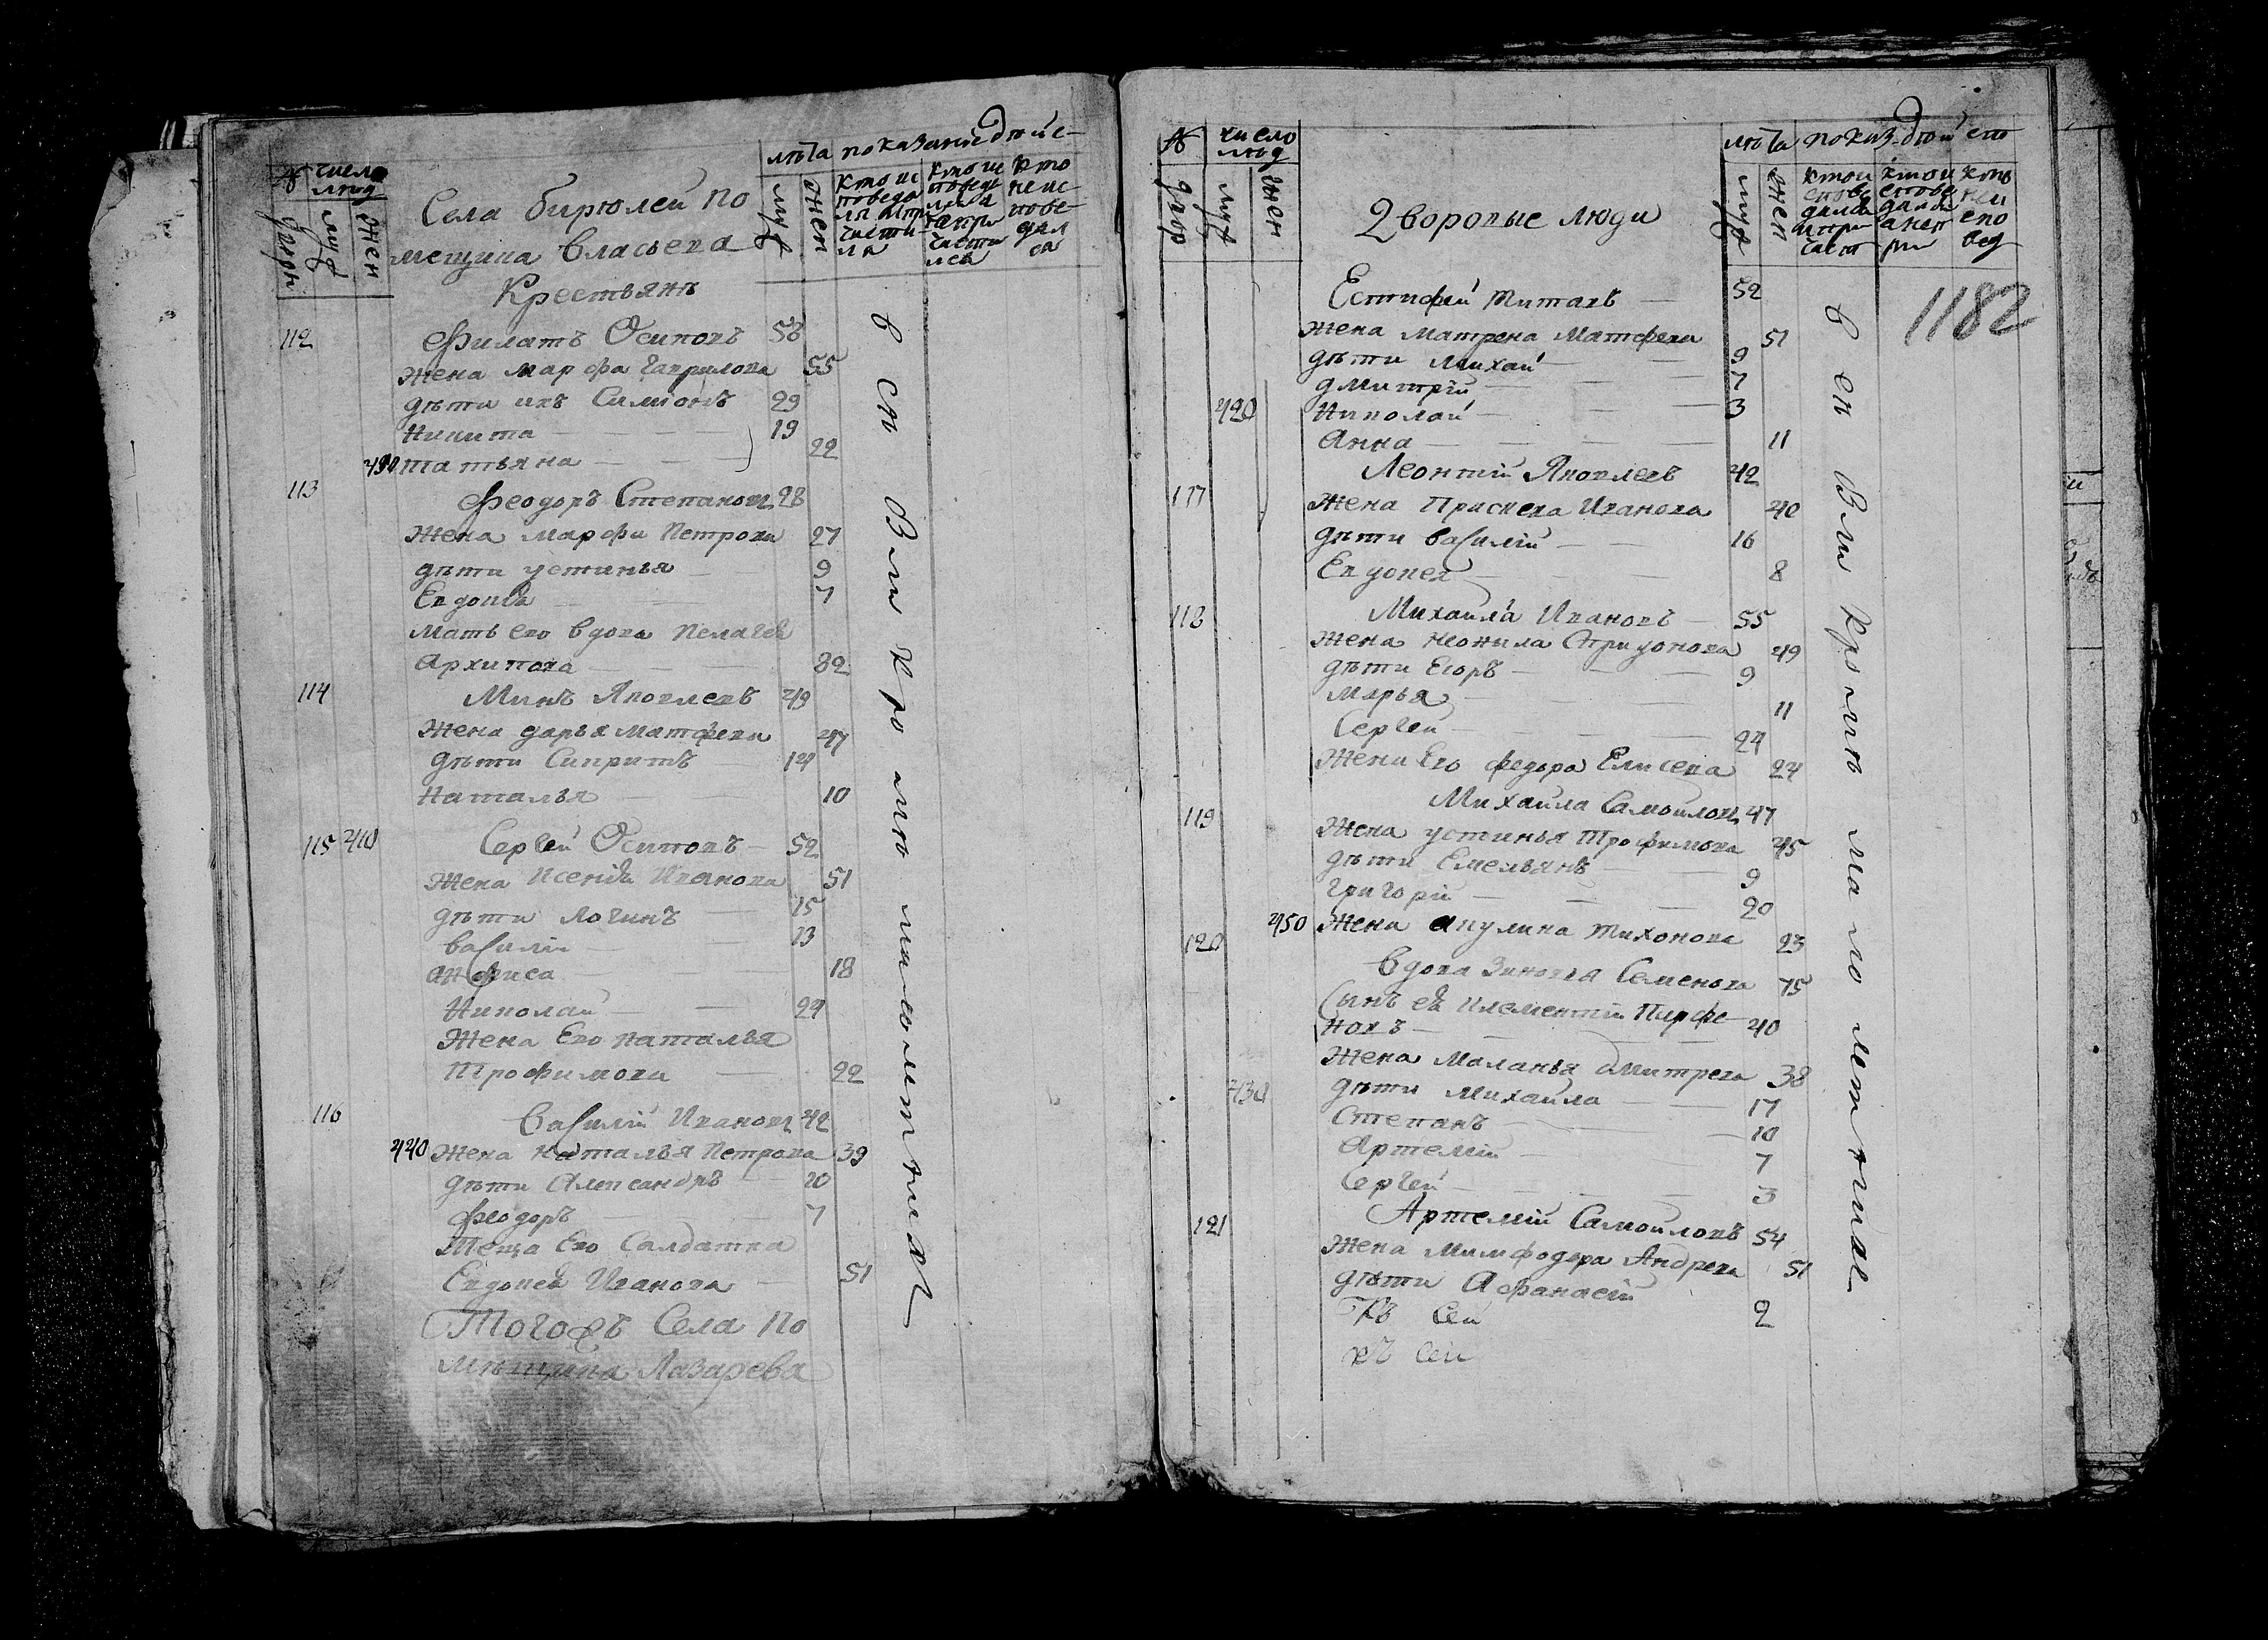 № число люд
двор муж жен
Села Бирюлей по
мещика Власьева
Крестьянъ
лѣта показаніе дѣйс-
муж жен
кто ис поведа лся и при части лся
кто ис поведы вался а не при части лся
кто не ис пове дал ся
112 Филатъ Осиповъ 58
Жена Марфа Гаврилова 55
дѣти ихъ Симіонъ 29
Никита 19
430 Татьяна 22
113 Феодоръ Степановъ 28
Жена Марфа Петрова 27
дѣти Устинья 9
Евдокія 7
Мать его вдова Пелагея
Архипова 82
114 Минъ Яковлевъ 49
Жена Дарья Матфева 47
дѣти Спиритъ 14
Наталья 10
115 410 Сергей Осиповъ 52
Жена Ксенія Иванова 51
дѣти Логинъ 15
Василій 13
Анфиса 18
Николай 24
Жена Его Наталья
Трофимова 22
116 Василій Ивановъ 42
440 Жена Наталья Петрова 39
дѣти Александръ 20
Феодоръ 7
Теща Его Салдатка
Евдокея Иванова 51
Тогожъ Села По
мѣщика Лазарева
№ число люд
двор муж жен
Дворовые люди
лѣта показ. дѣйст
муж жен
1182
Естифей Титовъ 52
Жена Матрена Матфева 51
дѣти Михай 9
Дмитрій 7
420 Николай 3
Анна 11
117 Леонтій Яковлевъ 42
Жена Прасковя Иванова 40
дѣти Василій 16
Евдокея 8
118 Михайла Ивановъ 55
Жена Неонила Спридонова 49
дѣти Егоръ 9
Марья 11
Сергей 24
Жена Его Федора Елисева 24
119 Михайла Самойловъ 47
Жена Устинья Трофимова 45
дѣти Емельянъ 9
Григорій 20
450 Жена Акулина Тихонова 23
120 Вдова Зиновья Семенова 75
Сынъ ея Клементій Парфе
новъ 40
Жена Маланья Дмитрева 38
430 дѣти Михайла 17
Степанъ 10
Артемій 7
Сергей 3
121 Артемій Самойловъ 54
Жена Минфодора Андрева 51
дѣти Афанасій
Къ Сей 2
къ Сей